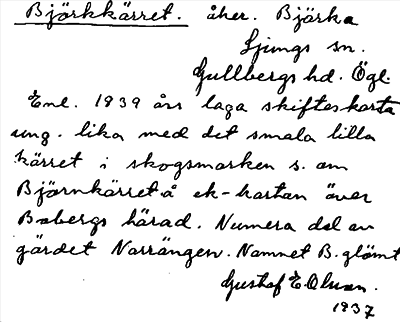 Björkkärret. åker. Björka
Ljungs sn.
Gullbergs hd. Ögl.
Enl. 1839 års laga skifteskarta
ung. lika med det smala lilla
kärret i skogsmarken s. om
Björnkärret å ek-kartan över
Bobergs härad. Numera del av
gärdet Norrängen. Namnet B. glömt
Gustaf E Olson.
1937